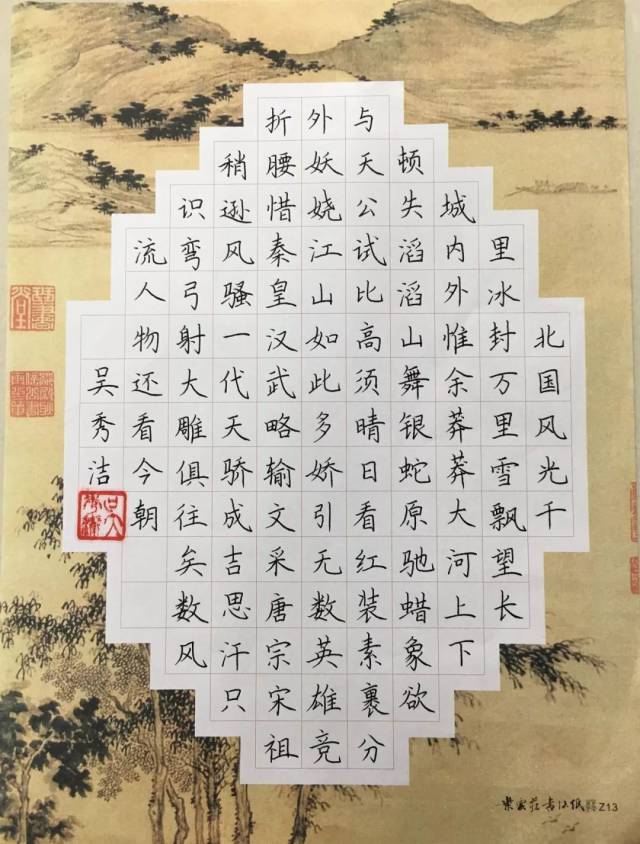 北国风光千
里冰封万里雪飘望长
城内外惟余莽莽大河上下
顿失滔滔山舞银蛇原驰蜡象欲
与天公试比高须晴日看红装素裹分
外妖娆江山如此多娇引无数英雄竞
折腰惜秦皇汉武略输文采唐宗宋祖
稍逊风骚一代天骄成吉思汗只
识弯弓射大雕俱往矣数风
流人物还看今朝
吴秀洁
Z13